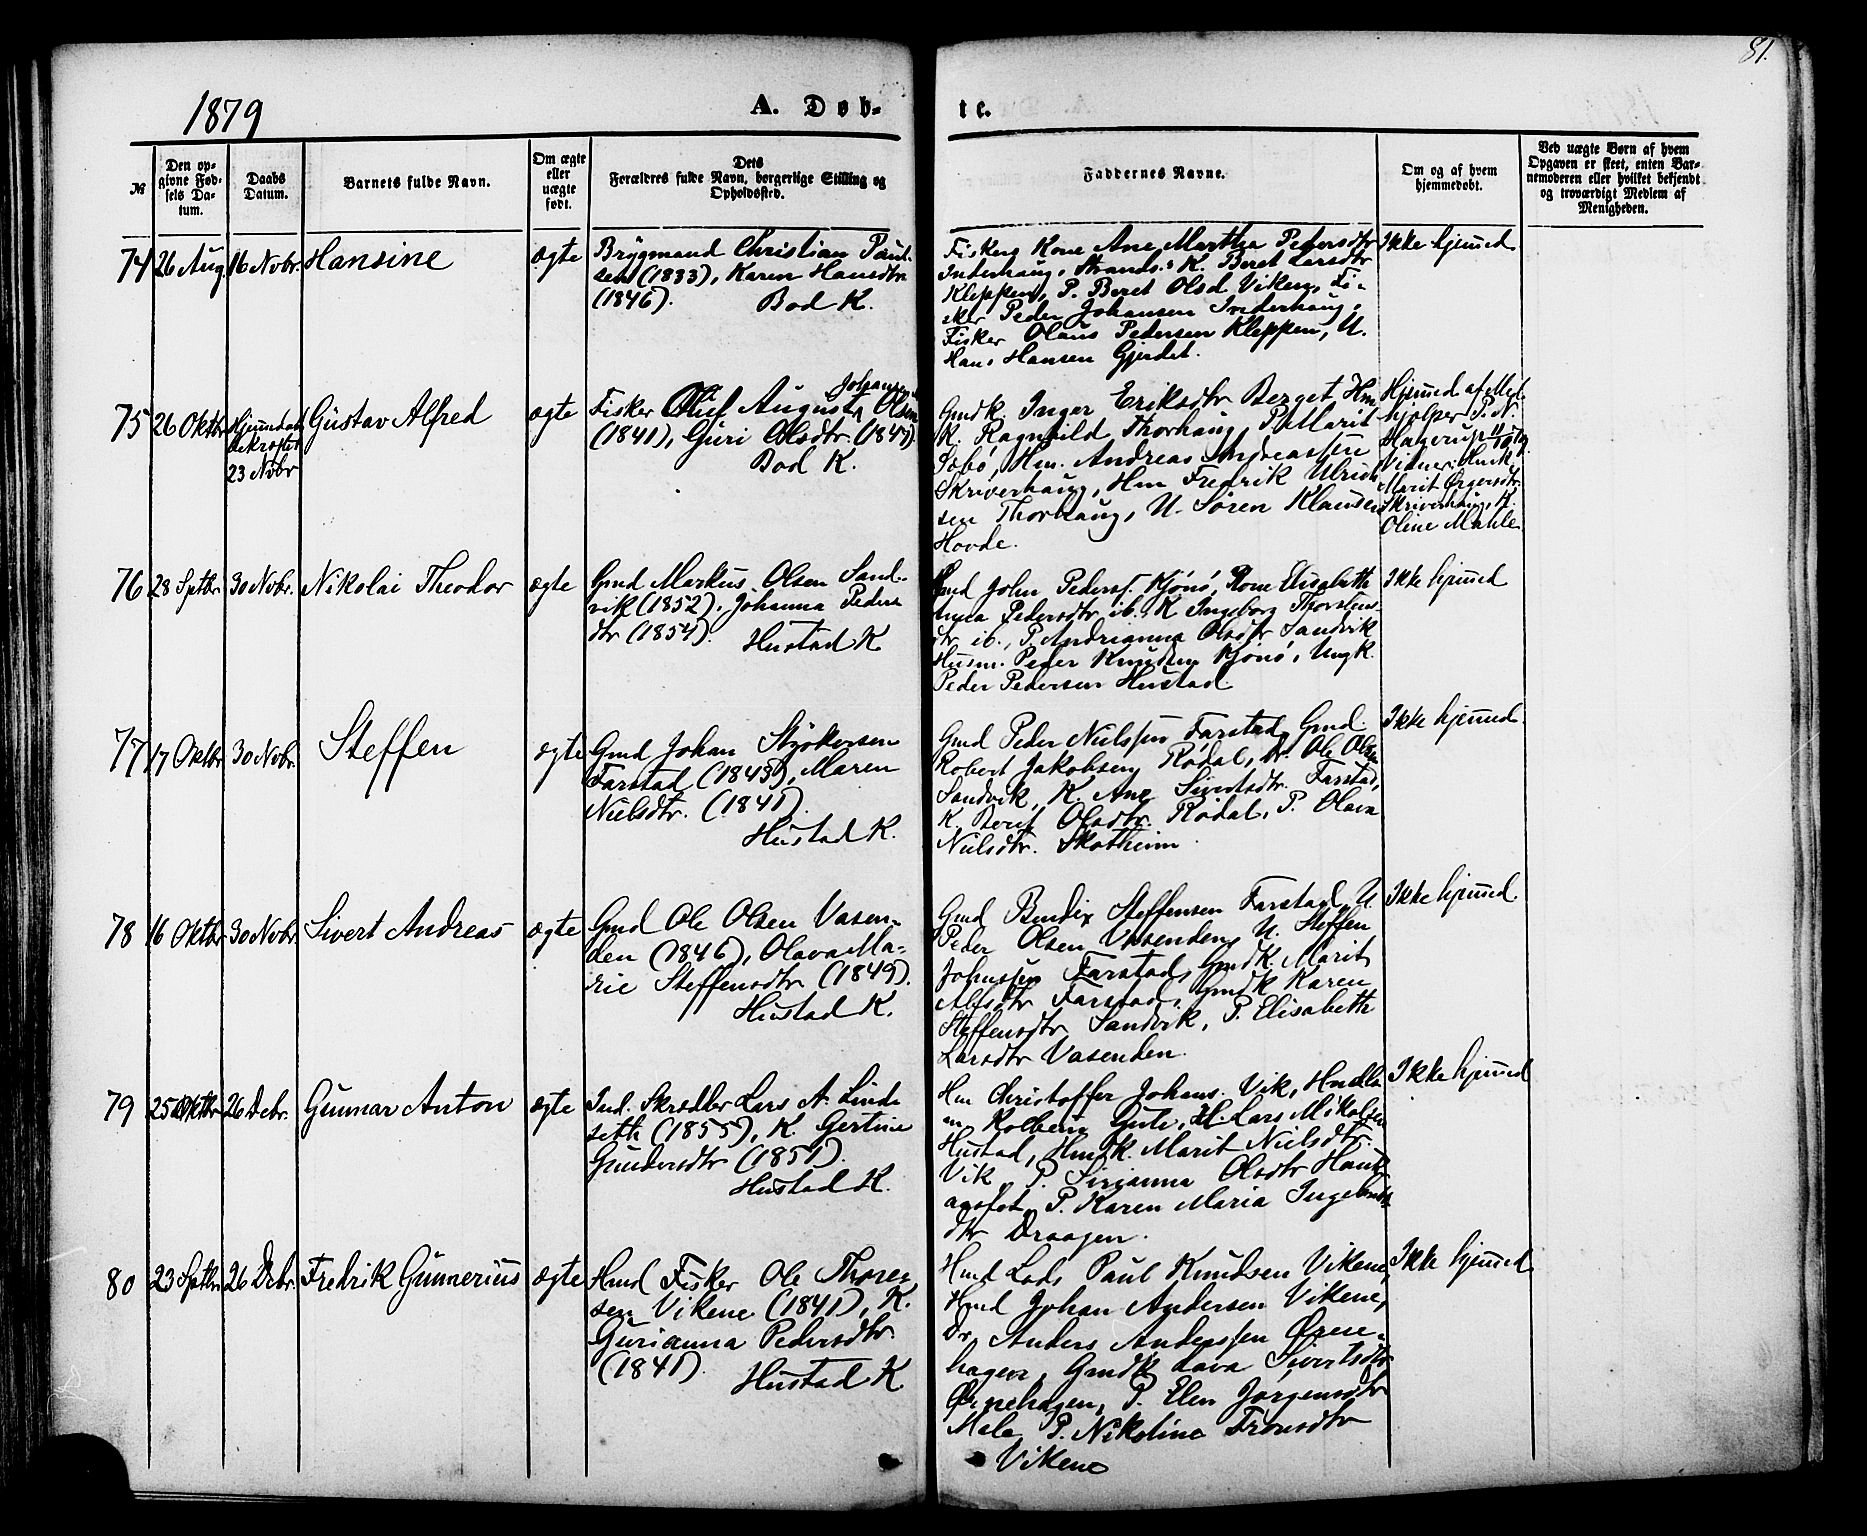 81.
1879
A. Døb-
te.
№
Den op-
givne Fød-
sels Da-
tum.
Daabs
Datum.
Barnets fulde Navn.
Om ægte
eller
uægte
født.
Dets
Forældres fulde Navn, borgerlige Stilling og
Opholdssted.
Faddernes Navne.
Om og af hvem
hjemmedøbt.
Ved uægte Børn af hvem
Opgaven er skeet, enten Bar-
nemoderen eller hvilket bekjendt
og troværdigt Medlem af
Menigheden.
74 26 Aug. 16 Novbr. Hansine ægte
Brygmand Christian Paul-
sen (1833), Karen Hansdtr
(1846). Bod K.
Fiskers Kone Ane Marthea Pedersdtr
Inderhaug, Strands. K. Beret Larsdtr
Kleppen, P. Beret Olsd. Viken, Fi-
sker Peder Johansen Inderhaug,
Fisker Olaus Pedersen Kleppen, U.
Hans Hansen Gjerdet.
Ikke hjemmed
75 26 Oktbr
23 Nvbr
Gustav Alfred ægte
Johansen
Fisker Oluf August Olsen
(1841), Guri Olsdtr.
Bod K.
Gmdk. Inger Eriksdtr Berget Hm
K. Ragnhild Thorhaug, P. Marit
Hm. Andreas Andreassen
Skriverhaug, Hm Fredrik Ulrich
sen Thorhaug, U. Søren Klausen
Hovde.
Hjemmed af Med
hjelper P. N.
Marit
Skriverhaug, K.
Oline Mahle.
76 28 Sptbr. 30 Novbr. Nikolai Theodor ægte
Gmd Markus Olsen Sand-
vik (1852), Johanna Peders
dtr (1854).
Hustad K.
Gmd John Peders. Kjønø, Kone Elisabeth
Anna Pedersdtr ib. K Ingeborg Thorstens
dtr ib., P. Andrianna Olsdtr Sandvik
Husm. Peder Knudsen Kjønø, Ungk.
Peder Pedersen Hustad
Ikke hjemmed
77 17 Oktbr. 30 Nvbr. Steffen ægte
Gmd Johan Styrkersen
Farstad (1843), Maren
Nielsdtr. (1841).
Hustad K.
Gmd Peder Nielssen Farstad, Gmd.
Robert Jakobsen Rødal, Dr. Ole Olsen
Sandvik, K. Ane Sivertsdtr. Farstad,
K. Berit Olsdtr. Rødal, P. Olava
Nielsdtr. Skotheim.
Ikke hjemmed.
78 16 Oktbr 30 Novbr. Sivert Andreas ægte
Gmd Ole Olsen Vasen-
den (1846), Olava Ma-
rie Steffensdtr (1849).
Hustad K.
Gmd Bendix Steffensen Farstad, U
Peder Olsen Vasenden, U. Steffen
Johnssen Farstad, Gmdk. Marit
Alfsdtr Farstad, Gmdk Karen
Steffensdtr Sandvik, P. Elisabeth
Larsdtr Vasenden.
Ikke hjemmed
79 25 Oktbr 26 Debr. Gunnar Anton ægte
Ind. Skrædler Lars A. Linde
seth (1855), K. Gertine
Gundersdtr (1851).
Hustad K.
Hm Christoffer Johans. Vik, Handels
m. Kolbein Gule, H. Lars Mikalsen
Hustad, Hmdk. Marit Nielsdtr.
Vik, P. Sirianna Olsdtr Hauk
aasfet, P. Karen Maria Ingebrikts
dtr Draagen.
Ikke hjemmed
80 23 Sptbr. 26 Debr. Fredrik Gunnerius ægte
Hmd Fisker Ole Thores
sen Vikene (1841), K.
Gurianna Pedersdtr.
(1841). Hustad K.
Hmd Lods Paul Knudsen Vikene,
Hmd Johan Andersen Vikene,
Dr. Anders Anderssen Ørene-
hagen, Gmdk Lava Sivertsdtr
Ørnehagen, P. Elen Jørgensdtr
Mele, P. Nikoline Fransdtr
Vikene
Ikke hjemmed